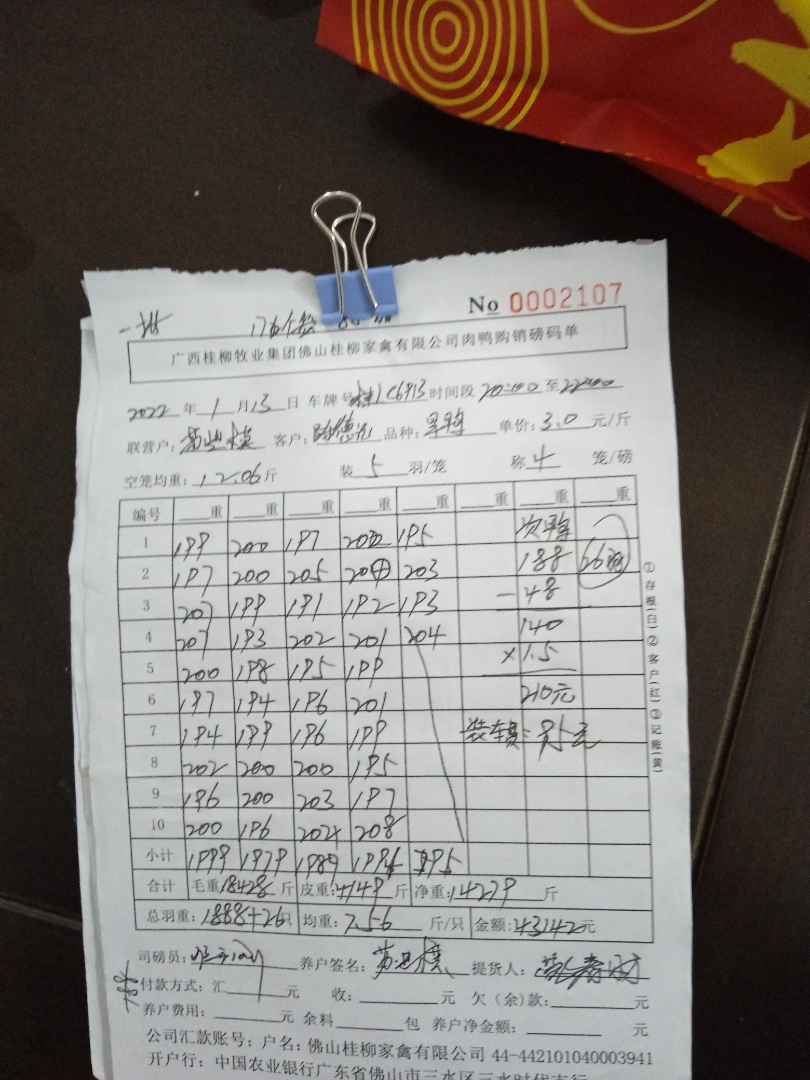 No 0002107
广西桂柳牧业集团佛山桂柳家禽有限公司肉鸭购销磅码单
2022年1月13日 车牌号 时间段20:00至22:00
联营户: 客户: 品种: 单价:3.0元/斤
空笼均重:12.06斤 装5羽/笼 称4笼/磅
编号 重 重 重 重 重 重 重 重
1 199 200 197 200 195 次鸭
2 197 200 205 203 188
3 207 199 191 192 193 -48
4 207 193 202 201 204 140
5 200 198 195 199 ×1.5
6 197 194 196 201 210元
7 194 199 196 199 装车费:
8 202 200 200 195
9 196 200 203 197
10 200 196 204 208
小计 1999 1979 1989
合计 毛重:18428斤 皮重:4149斤 净重:14279斤
总羽重:1888+26只 均重:7.56斤/只 金额:43142元
司磅员: 养户签名: 提货人:
付款方式:汇 元 收: 元 欠(余)款: 元
养户费用: 元 余料 包 养户净金额: 元
公司汇款账号:户名:佛山桂柳家禽有限公司 44-442101040003941
开户行:中国农业银行广东省佛山市三水区三水时代支行
①存根(白)②客户(红)③记账(黄)